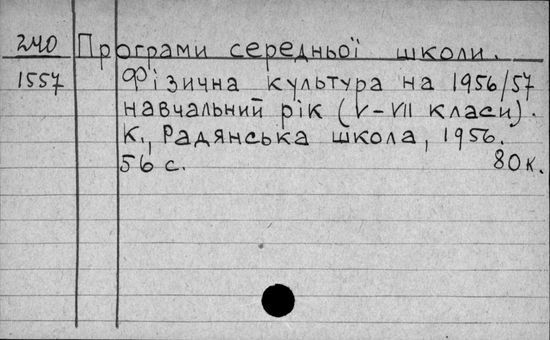 240 Програми середньої школи.
1557 Фізична культура на 1956/57
навчальний рік (V-VII класи).
К., Радянська школа, 1956.
56 с. 80 к.